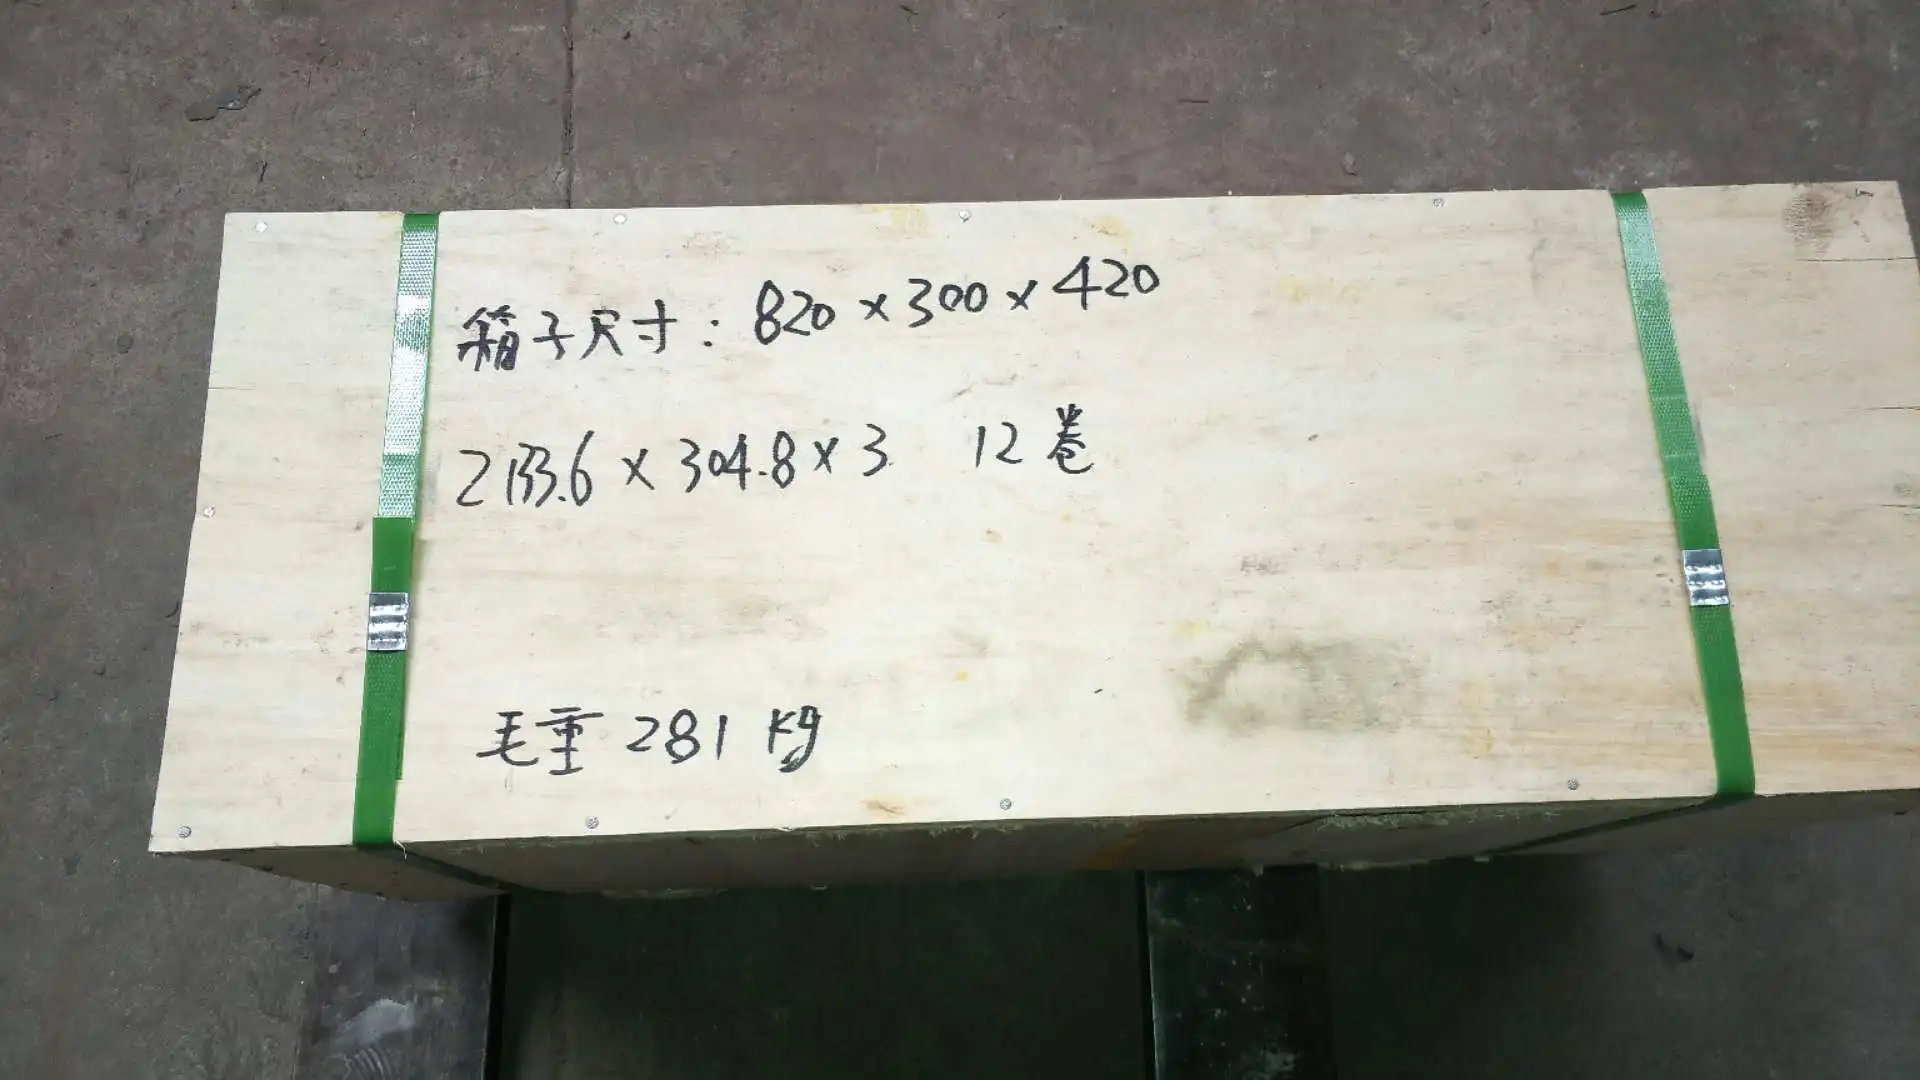 箱子尺寸：820×300×420
2133.6×304.8×3 12卷
毛重 281 kg